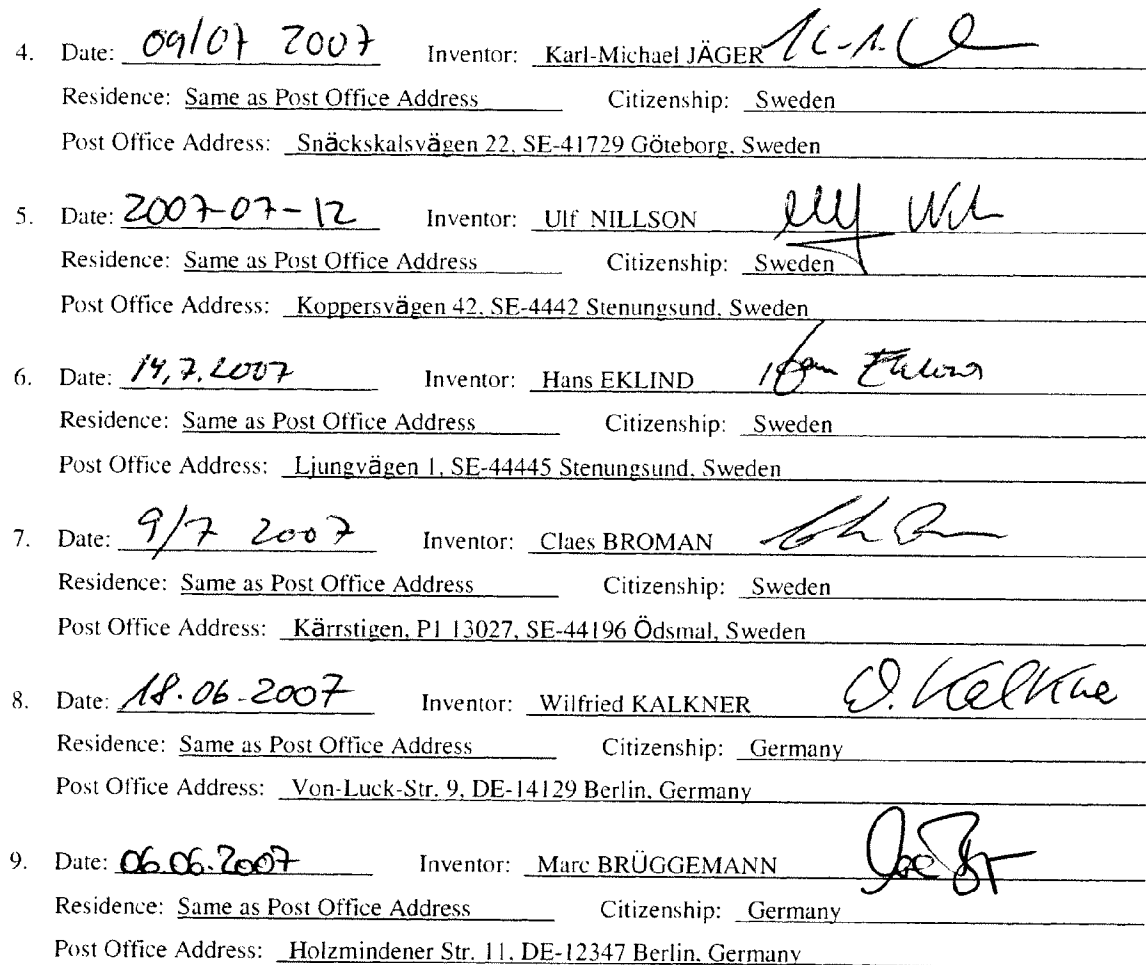 4. Date: 09/07 2007 Inventor: Karl-Michael JÄGER
Residence: Same as Post Office Address Citizenship: Sweden
Post Office Address: Snäckskalsvägen 22, SE-41729 Göteborg, Sweden
5. Date: 2007-07-12 Inventor: Ulf NILLSON Ulf
Residence: Same as Post Office Address Citizenship: Sweden
Post Office Address: Koppersvägen 42, SE-4442 Stenungsund, Sweden
6. Date: 14.7.2007 Inventor: Hans EKLIND Hans Eklind
Residence: Same as Post Office Address Citizenship: Sweden
Post Office Address: Ljungvägen 1, SE-44445 Stenungsund, Sweden
7. Date: 9/7 2007 Inventor: Claes BROMAN
Residence: Same as Post Office Address Citizenship: Sweden
Post Office Address: Kärrstigen, P1 13027, SE-44196 Ödsmal, Sweden
8. Date: 18.06-2007 Inventor: Wilfried KALKNER W. Kalkner
Residence: Same as Post Office Address Citizenship: Germany
Post Office Address: Von-Luck-Str. 9, DE-14129 Berlin, Germany
9. Date: 06.06.2007 Inventor: Marc BRÜGGEMANN
Residence: Same as Post Office Address Citizenship: Germany
Post Office Address: Holzmindener Str. 11, DE-12347 Berlin, Germany